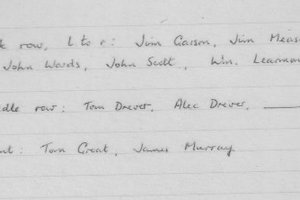 row, l to r: Jim Garson, Jim
John Wards, John Scott, Wm.
row: Tom Drever, Alec Drever,
: Tom Groat, James Murray